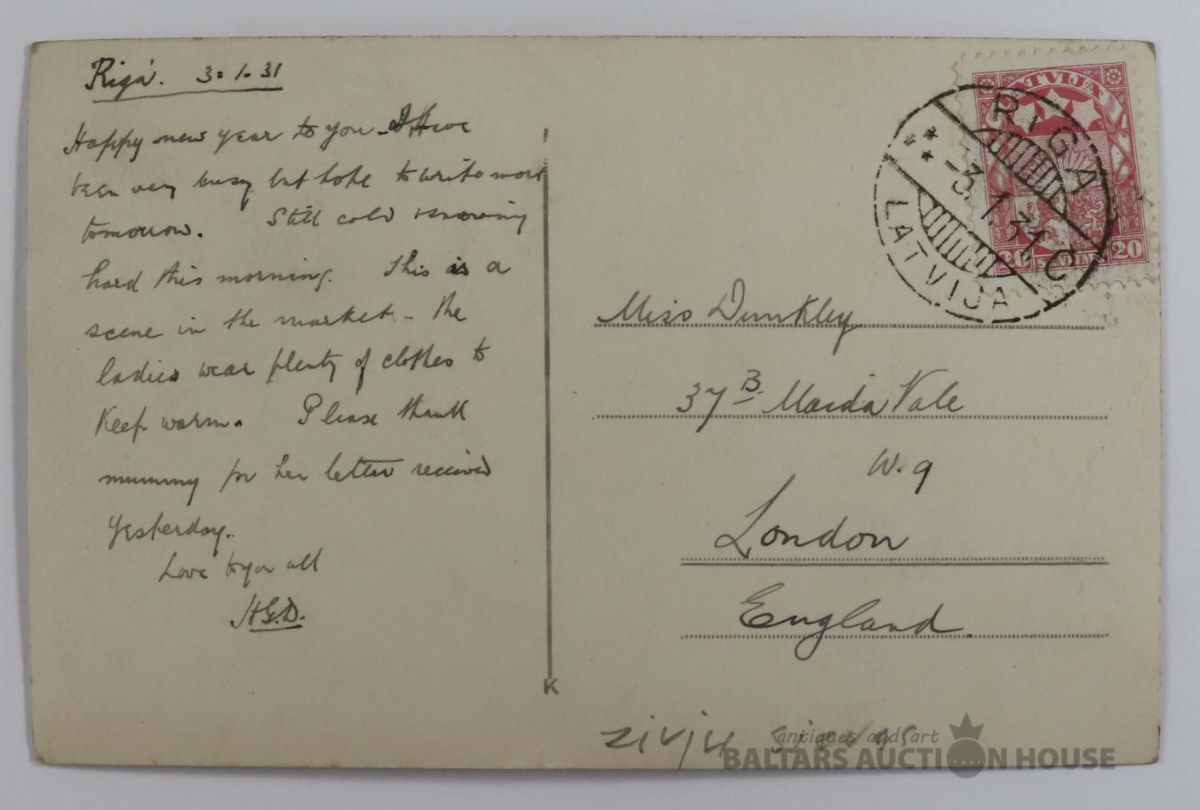 Riga. 3=1-31
Happy new year to you - I Have
been very busy but hope to write more
tomorrow. Still cold & snowing
hard this morning. This is a
scene in the market - The
ladies wear plenty of clothes to
keep warm. Please thank
mummy for her letter received
yesterday.
Love to you all
H.G.D.
K
LATVIJA
20 SANTIMU 20
RIGA C
-3. 1. 31
LATVIJA
Miss Dunkley
37B Maida Vale
W.9
London
England.
zivju
antiques and art
BALTARS AUCTION HOUSE